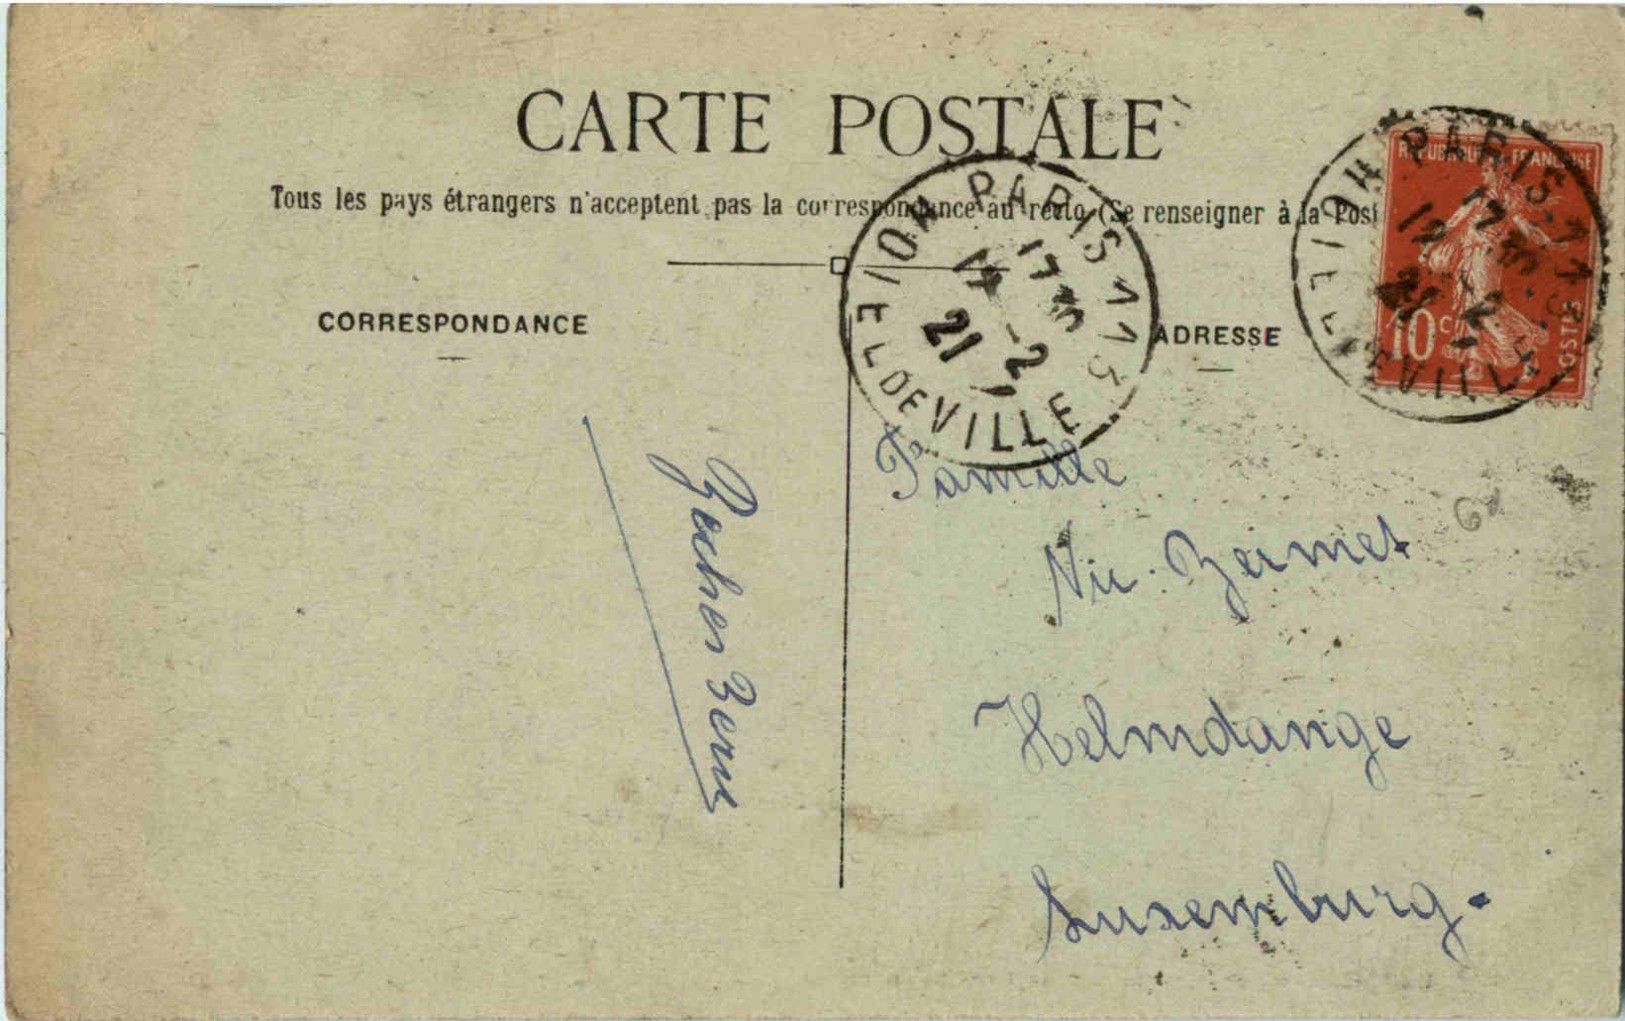 CARTE POSTALE
Tous les pays étrangers n'acceptent pas la correspondance au recto (Se renseigner à la Post
CORRESPONDANCE
ADRESSE
PARIS 113
17 30
17 -2
21
HOTEL DE VILLE
REPUBLIQUE FRANCAISE
10 c
POSTES
PARIS 113
HOTEL DE VILLE
Famille
Nic. Zeimet
Helmdange
Luxemburg.